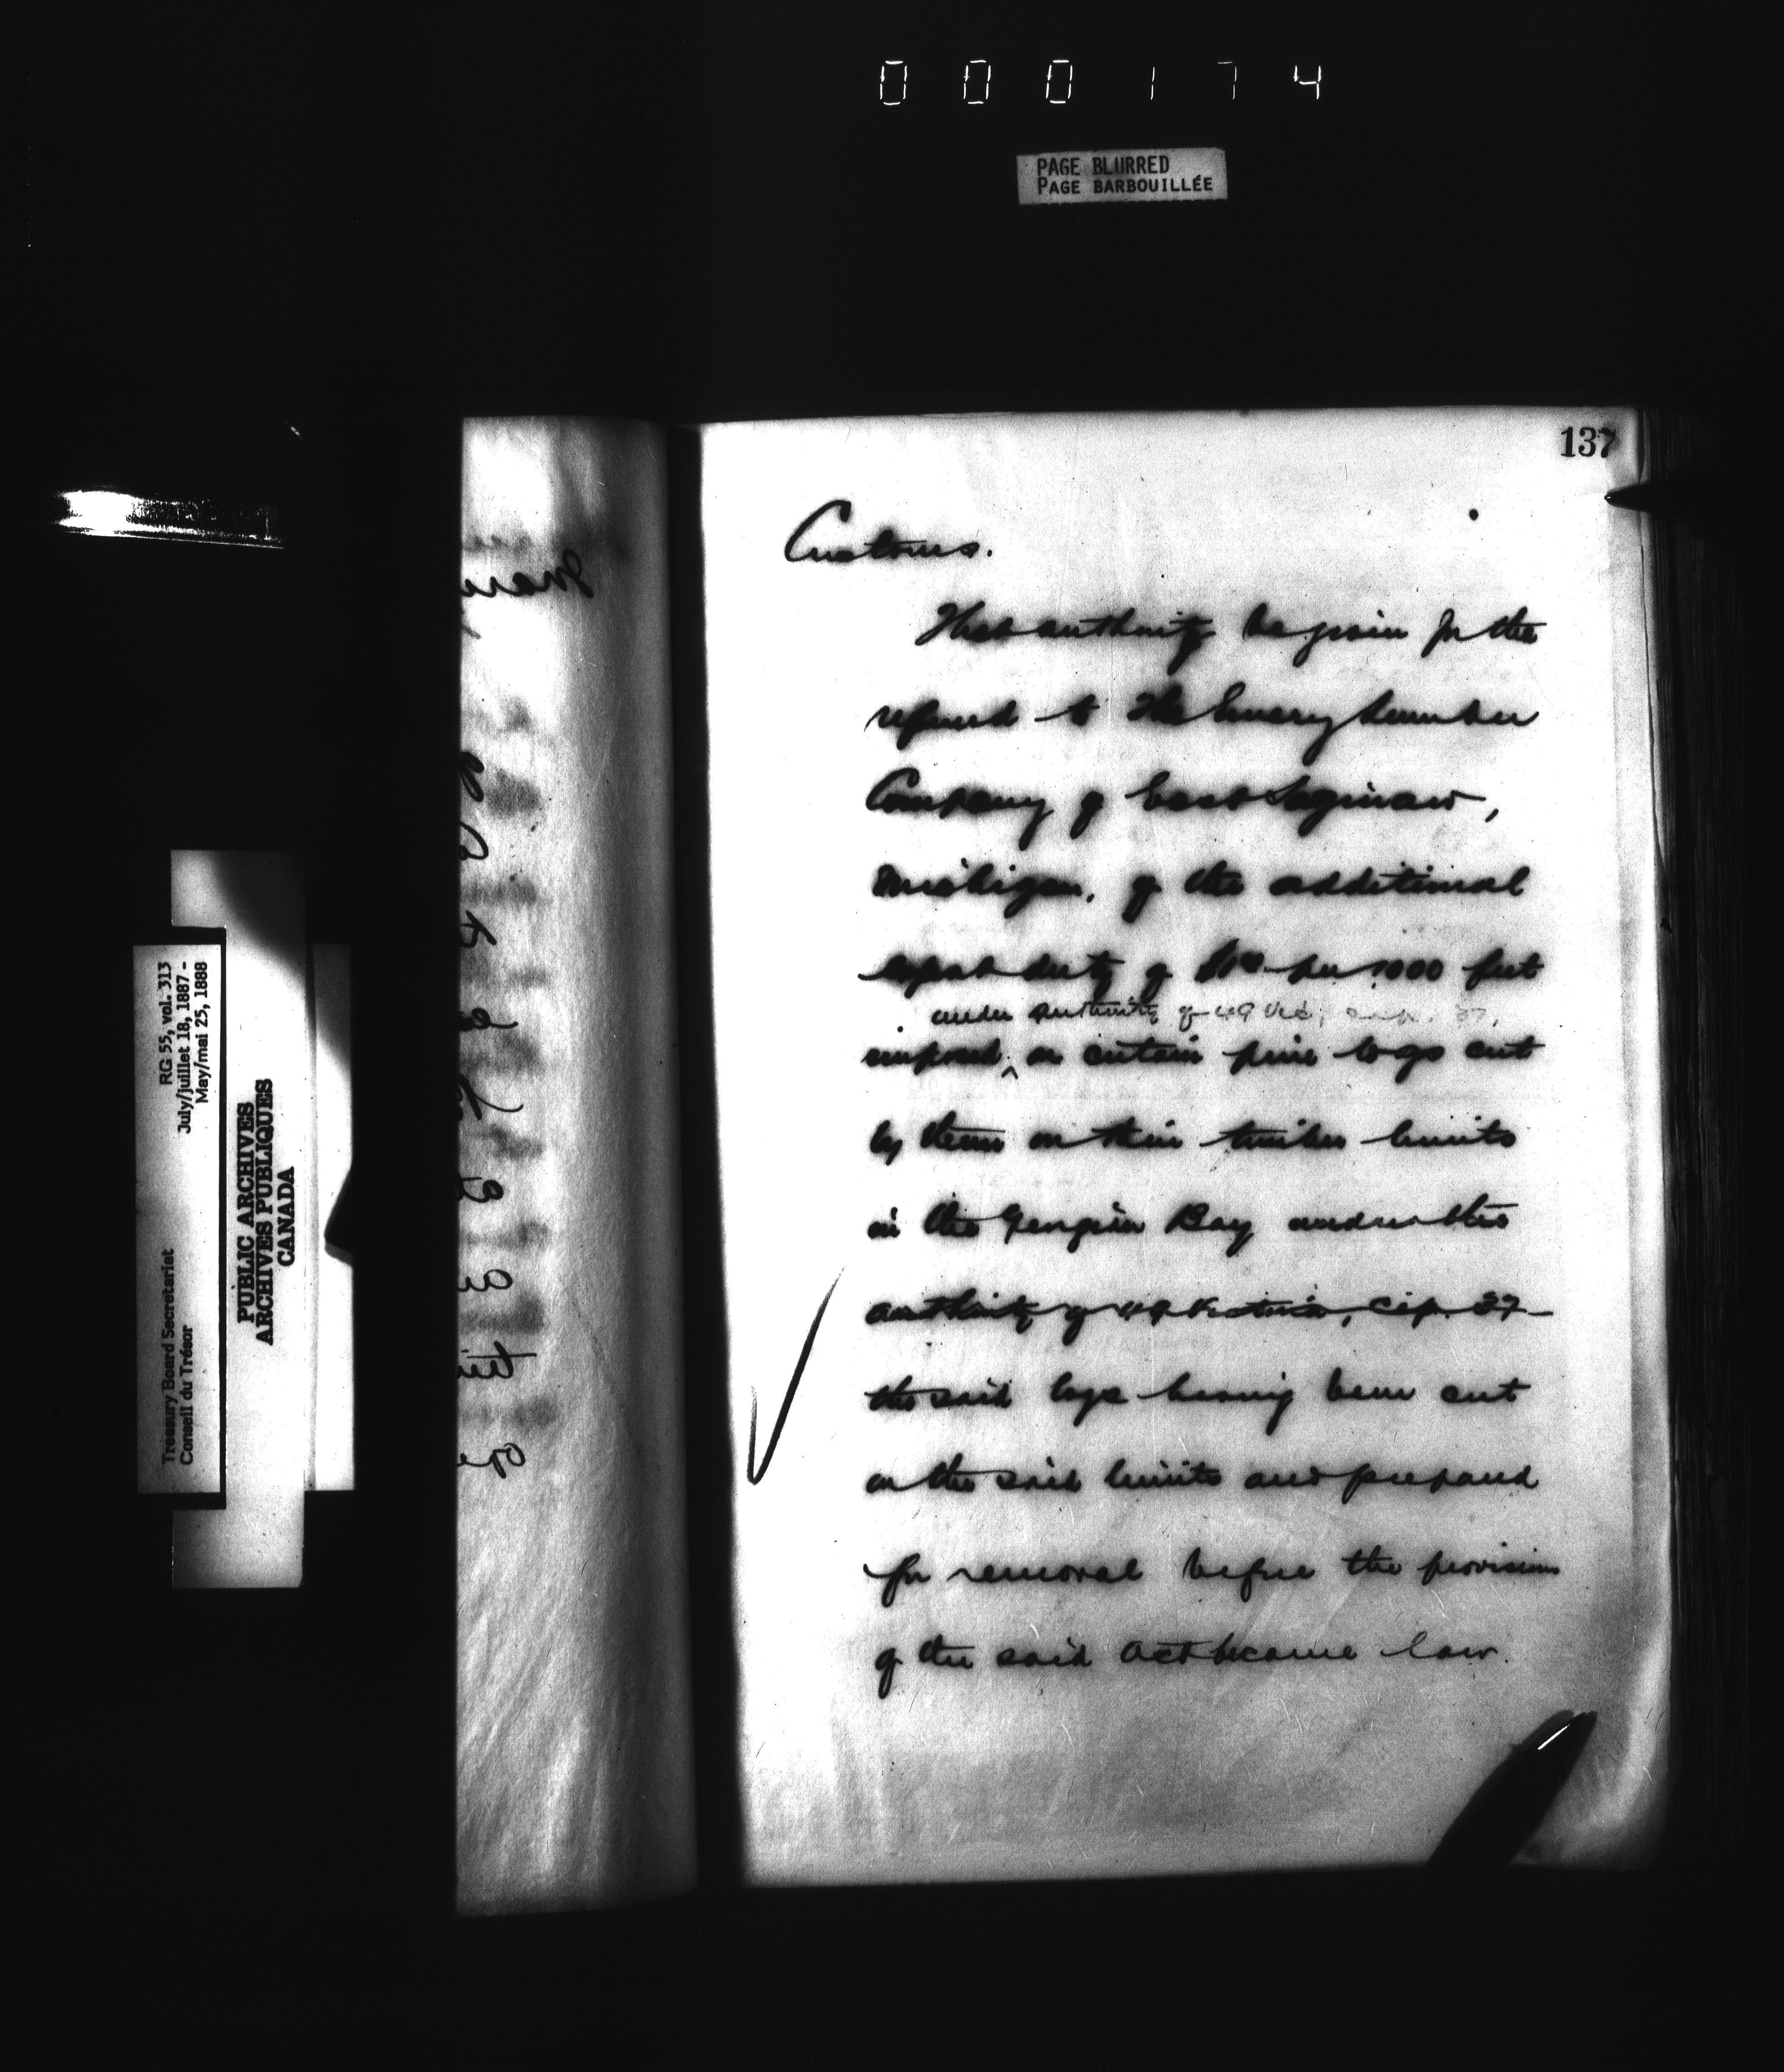 000174
PAGE BLURRED
PAGE BARBOUILLÉE
RG 55, vol. 313
July/juillet 18, 1887 -
May/mai 25, 1888
Treasury Board Secretariat
Conseil du Trésor
PUBLIC ARCHIVES
ARCHIVES PUBLIQUES
CANADA
137
Customs.
That authority be given for the
refund to the Emery Lumber
Company of East Saginaw,
Michigan, of the additional
export duty of $1 00 per 1000 feet
under authority of 49 Vic, cap. 37,
imposed ^ on certain pine logs cut
by them on their timber limits
in the Georgian Bay under the
authority of 49 Victoria, Cap. 37
the said logs having been cut
on the said limits and prepared
for removal before the provisions
of the said Act became law.